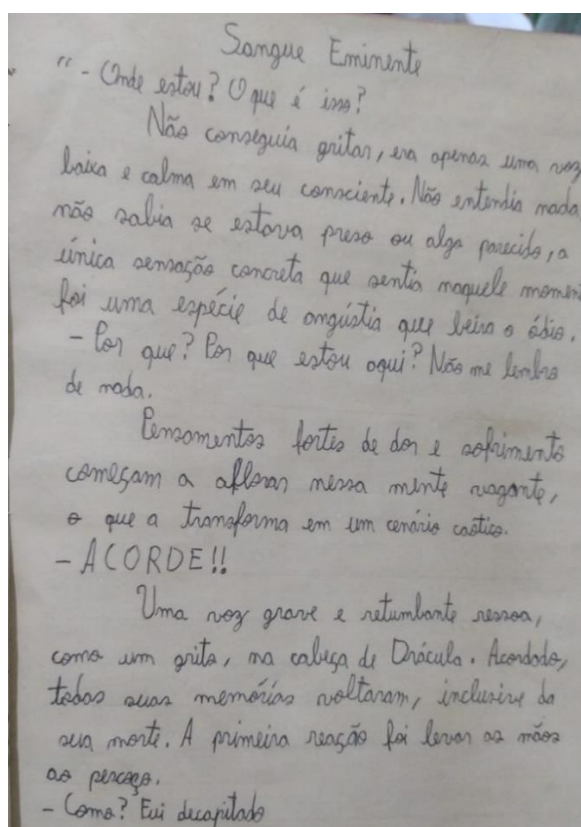 Sangue Eminente
"- Onde estou? O que é isso?
Não conseguia gritar, era apenas uma voz
baixa e calma em seu consciente. Não entendia nada,
não sabia se estava preso ou algo parecido, a
única sensação concreta que sentia naquele momen
foi uma espécie de angústia que beira o ódio.
- Por que? Por que estou aqui? Não me lembro
de nada.
Pensamentos fortes de dor e sofrimento
começam a aflorar nessa mente vagante,
o que a transforma em um cenário caótico.
- ACORDE!!
Uma voz grave e retumbante ressoa,
como um grito, na cabeça de Drácula. Acordado,
todas suas memórias voltaram, inclusive da
sua morte. A primeira reação foi levar as mãos
ao pescoço.
- Como? Fui decapitado